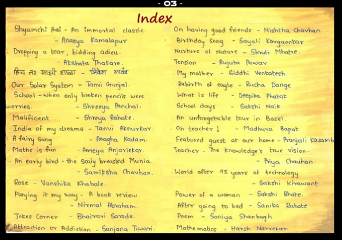 - 03 -
Index
Shyamchi Aai - An immortal classic
- Aneeya Kamalapur
Dropping a tear, bidding adieu
- Akshata Thatare.
Our Solar System - Tanvi Gunjal.
School - when only broken pencils were
worries. - Shreeya Panchal.
Maleficent - Shreya Rahate.
India of my dreams - Tanvi Resurkar
A fairy song - Anagha Kadam.
Maths is fun - Aneeya Anjarlekar.
An early bird - the Saily breasted Munia
- Samiksha Chavhan.
Rose - Vanshika Khabale.
Playing it my way - A book review
- Nirmal Abraham.
Jokes Corner - Bhairavi Sarode.
Attraction or Addiction - Sanjana Tiwari
On having good friends - Nishita Chavhan
Birthday Song - Sayali Kangaonkar
Nurture of Nature - Shruti Mhatre.
Tension - Rujuta Pawar
My mother - Siddhi Venkatesh.
Rebirth of eagle - Rucha Dange
What is life - Deepika Phatak
School days - Sakshi Naik
An unforgetable tour in Basel.
Oh teacher! - Madhura Bapat
Featured guest at our home - Pranjali Kasambe
Teacher - The knowledge's true vision
- Priya Chauhan
World after 95 years of technology
- Sakshi Kirawant
Power of a woman - Sakshi Bhate.
After going to bed - Sanika Rahate
Poem - Saniya Shanbhogh
Mathematics - Harsh Narvekar